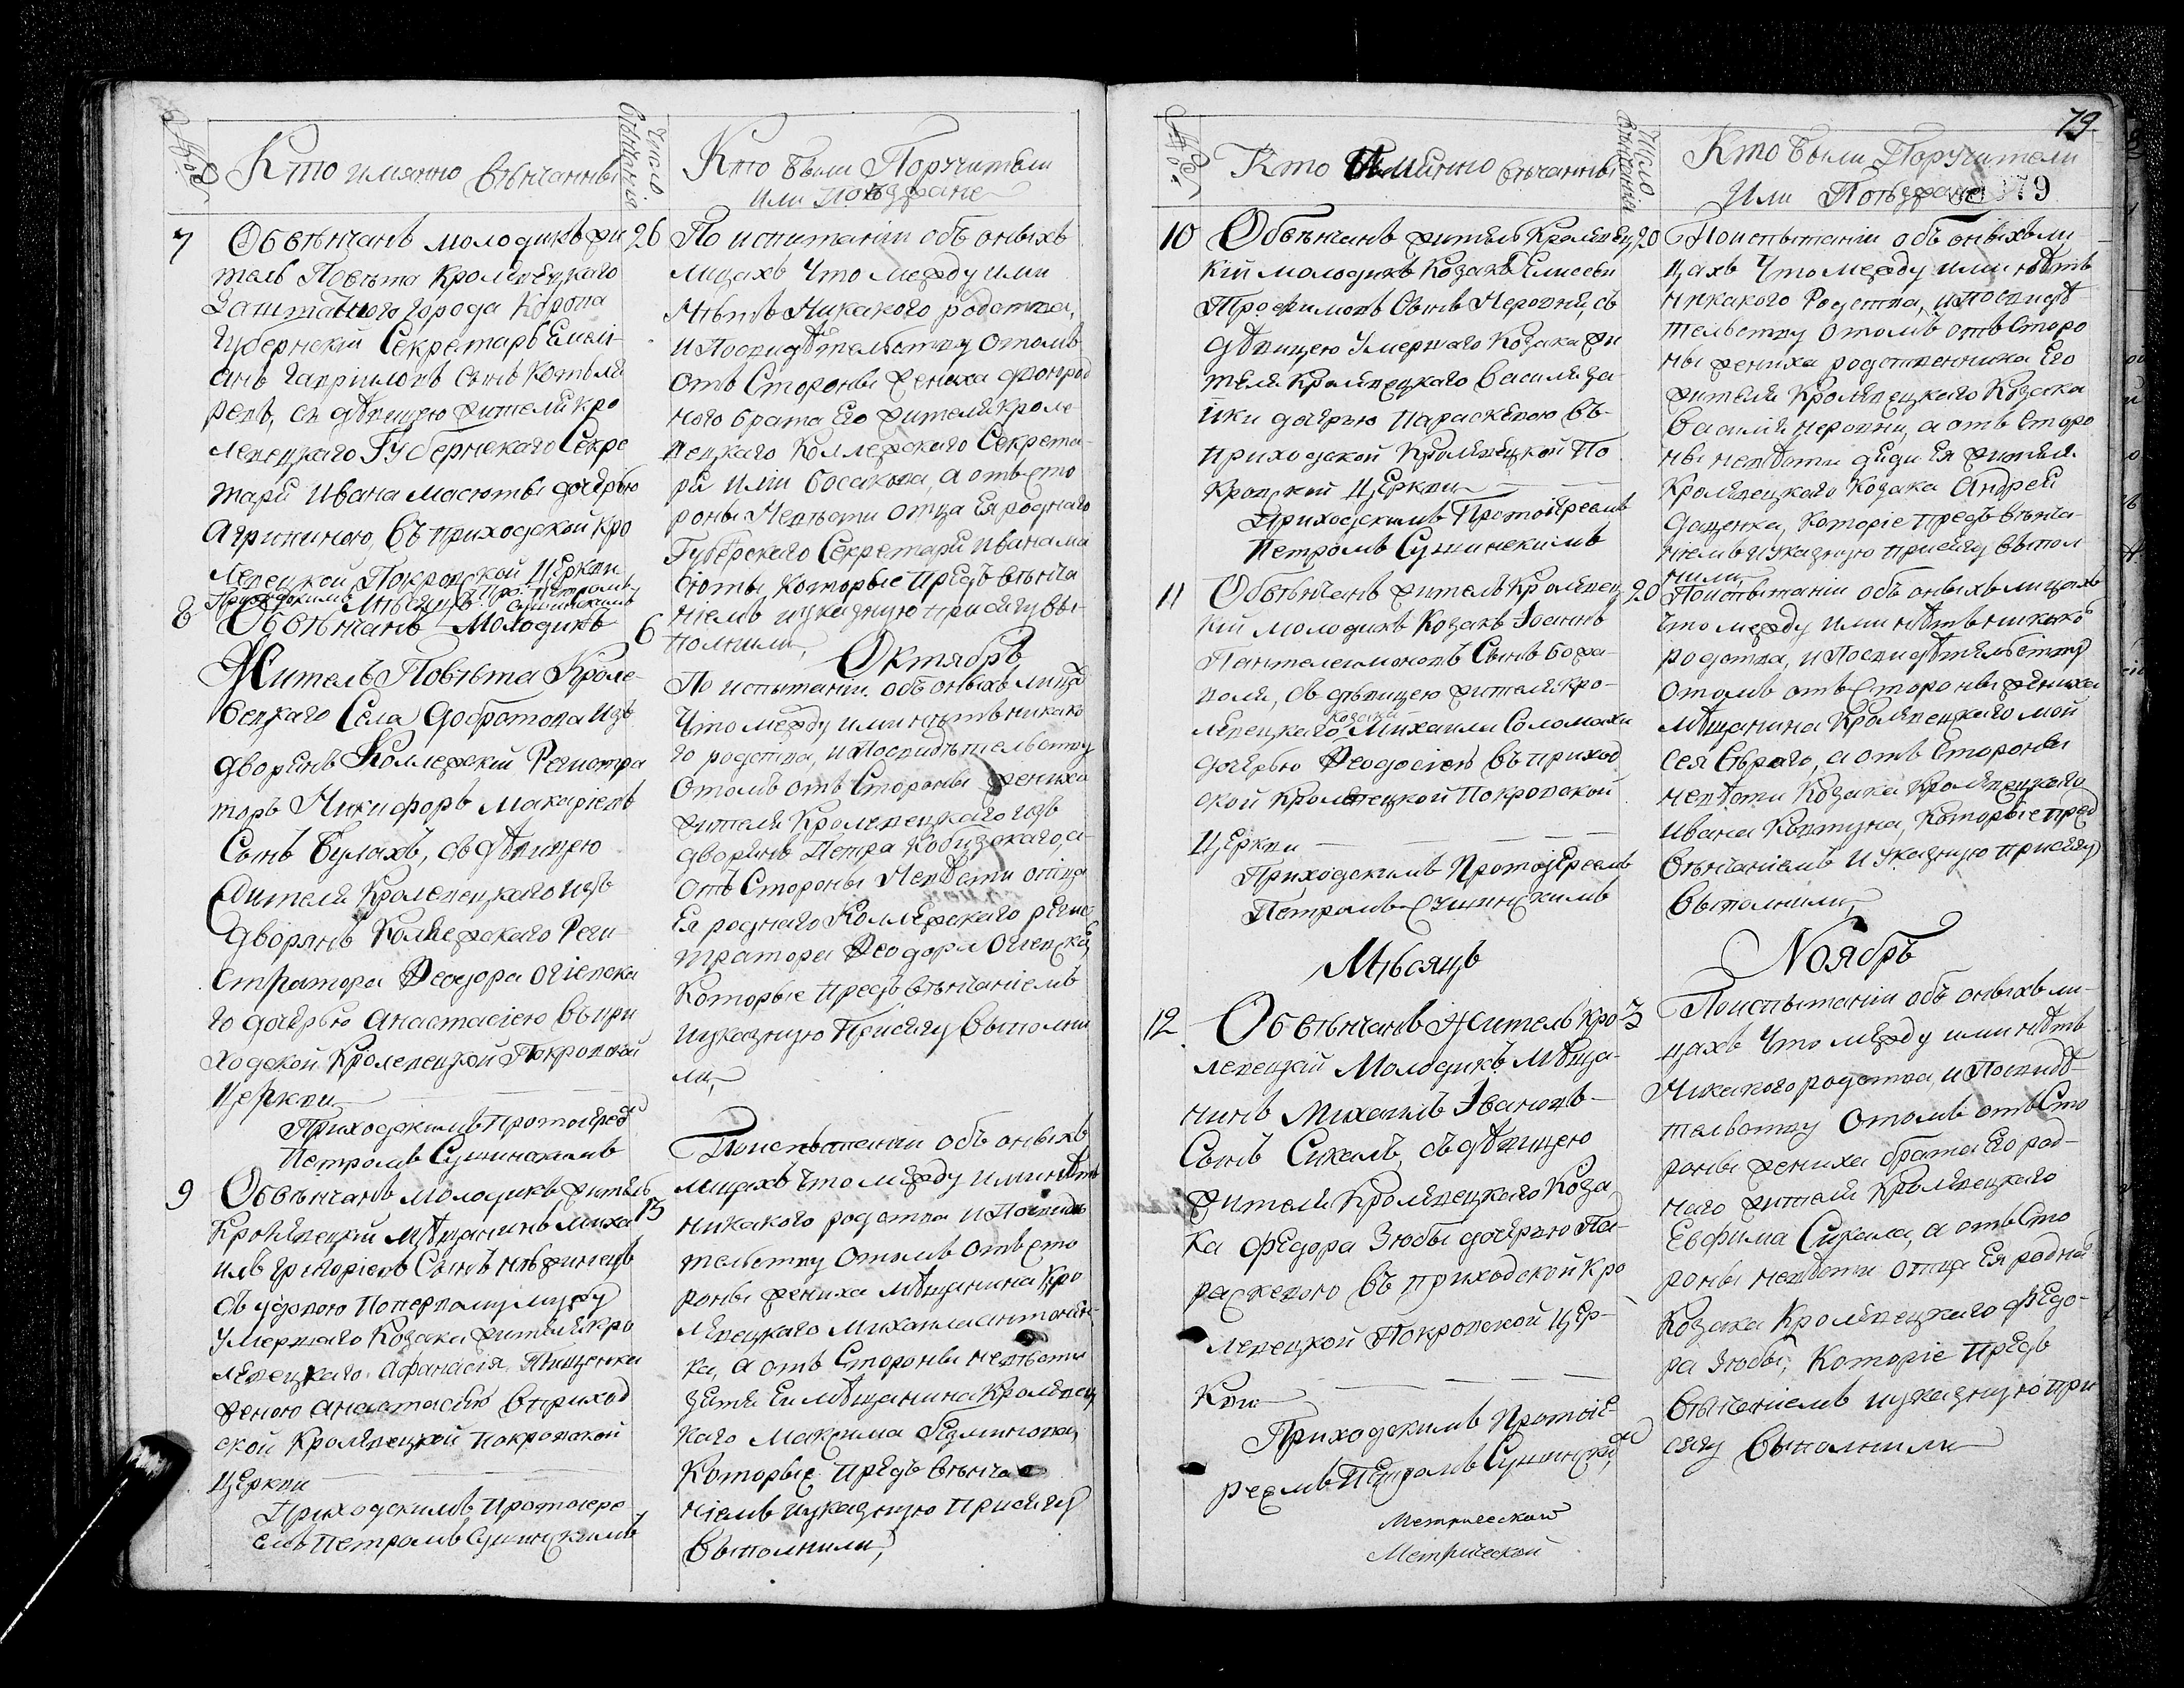 Кто имянно вѣнчанны
Число вѣнчанія
Кто были Поручители
или Поѣзжане
7
Обвѣнчанъ молодикъ жи
тель Повѣта Кролевецкаго
Заштатного города Коропа
Губернскій Секретарь Емели-
анъ Гавриловъ сынъ Котля
ревъ, съ дѣвицею жителя Кро
левецкаго Губернскаго Секре
таря Ивана Масюты дочерью
Агрипиною, въ приходской Кро
левецкой Покровской Церкви
Приходскимъ Про. Петромъ
Мѣсяцъ Сушинскимъ
26
По испитаніи объ оныхъ
лицахъ что между ими
Нѣтъ Никакого родства,
и Посвидѣтельству о томъ
отъ Стороны жениха
ного брата Его жителя Кроле
вецкаго Коллежского Секрета-
ря Босакова, а отъ сто
роны Невѣсти отца Ея роднаго
Губерского Секретаря Ивана Ма
сюты, которые предъ вѣнча
ніемъ указную присягу вы-
полнили,
Октябрь
8
Обвѣнчанъ Молодикъ
Житель Повѣта Кроле-
вецкаго Села Добротова изъ
дворянъ Коллежскій Регистра
торъ Никифоръ Макаріевъ
Сынъ Булахъ, съ дѣвицею
Жителя Кролевецкаго изъ
Дворянъ Коллежскаго Реги-
стратора Феодора Огіевска
го дочерью Анастасіею въ при
ходской Кролевецкой Покровской
Церкви
Приходскимъ протоіерее
Петромъ Сушинскимъ
6
По испытаніи объ оныхъ лица
Что между ими нѣтъ никако
го родства, и Посвидѣтельству
о томъ отъ Стороны жениха
жителя Кролевецкаго изъ
дворянъ Петра Кобизскаго, а-
отъ Стороны Невѣсти отца
Ея роднаго Коллежскаго регис
тратора Феодора Огіевска,
Которые предъ вѣнчаніемъ
указную Присягу выполни
ли,
9
Обвѣнчанъ молодикъ житель
Кролевецкій мѣщанинъ Миха
илъ Григоріевъ Сынъ Нѣжинецъ
съ удовою по первому мужу
умершаго Козака жителя Кро
левецкаго Афанасія Тищенка
женою Анастасіею въ приход
ской Кролевецкой Покровской
Церкви
Приходскимъ Протоіере
емъ Петромъ Сушинскимъ
13
По испытаніи объ оныхъ
лицахъ что между ими нѣтъ
никакого родства и Посвидѣ
тельству о томъ отъ сто
роны жениха мѣщанина Кро
левецкаго Михаила Антонен-
ка, а отъ Стороны невѣсти
зятя Ея мѣщанина Кролевец
каго Максима
Которые предъ вѣнча
ніемъ указную присягу
выполнили,
79
Кто Имянно вѣнчанны
Число вѣнчанія
Кто были Поручители
Или Поѣзжане
379
10
Обвѣнчанъ житель Кролевец
кій молодикъ Козакъ Елисей
Трофимовъ Сынъ Неровня, съ
дѣвицею Умершаго Козака жи
теля Кролевецкаго Василя За
ики дочерью Параскевою въ
приходской Кролевецкой По
кровской Церкви
Приходскимъ Протоіереемъ
Петромъ Сушинскимъ
20
По испытаніи объ оныхъ ли
цахъ что между ими нѣтъ
никакого Родства, и Посвидѣ
тельству о томъ отъ Сторо
ны жениха родственника Его
жителя Кролевецкаго Козака
Василя Неровни, а отъ Сторо
ны невѣсти дяди Ея жителя
Кролевецкаго Козака Андрея
Даценка, Которіе предъ вѣнча-
ніемъ Указную присягу выпол
нили,
11
Обвѣнчанъ житель Кролевец
кій молодикъ Козакъ Іоаннъ
Пантелеимоновъ Сынъ
съ дѣвицею жителя Кро-
козака
левецкаго Михаила Соломахи
дочерью Феодосіею въ приход
ской Кролевецкой Покровской
Церкви
Приходскимъ Протоіереемъ
Петромъ Сушинскимъ
20
По испытаніи объ оныхъ лицахъ
что между ими нѣтъ никако
родства, и Посвидѣтельству
о томъ отъ Стороны жениха
мѣщанина Кролевецкаго Мой
сея Сѣраго, а отъ Стороны
невѣсти Козака Кролевецкаго
Ивана Ковтуна, Которые пред
вѣнчаніемъ Указную присягу
выполнили,
Мѣсяцъ
Ноябрь
12
Обвѣнчанъ Житель Кро
левецкій Молодикъ Мѣща-
нинъ Михаилъ Івановъ
Сынъ Сикалъ, съ дѣвицею
жителя Кролевецкаго Коза
ка Федора Зюбы дочерью Па-
раскевою въ приходской Кро
левецкой Покровской Цер-
кви
Приходскимъ Протоіе-
реемъ Петромъ Сушински
3
По испытаніи объ оныхъ ли-
цахъ что между ими нѣтъ
Никакого родства, и Посвидѣ-
тельству о томъ отъ Сто
роны жениха брата Его род-
наго жителя Кролевецкаго
Евфима Сикала, а отъ Сто
роны невѣсти отца Ея родна
Козака Кролевецкаго Федо-
ра Зюбы, Которіе предъ
вѣнчаніемъ указную при
сягу выполнили
Метрической
Метрической